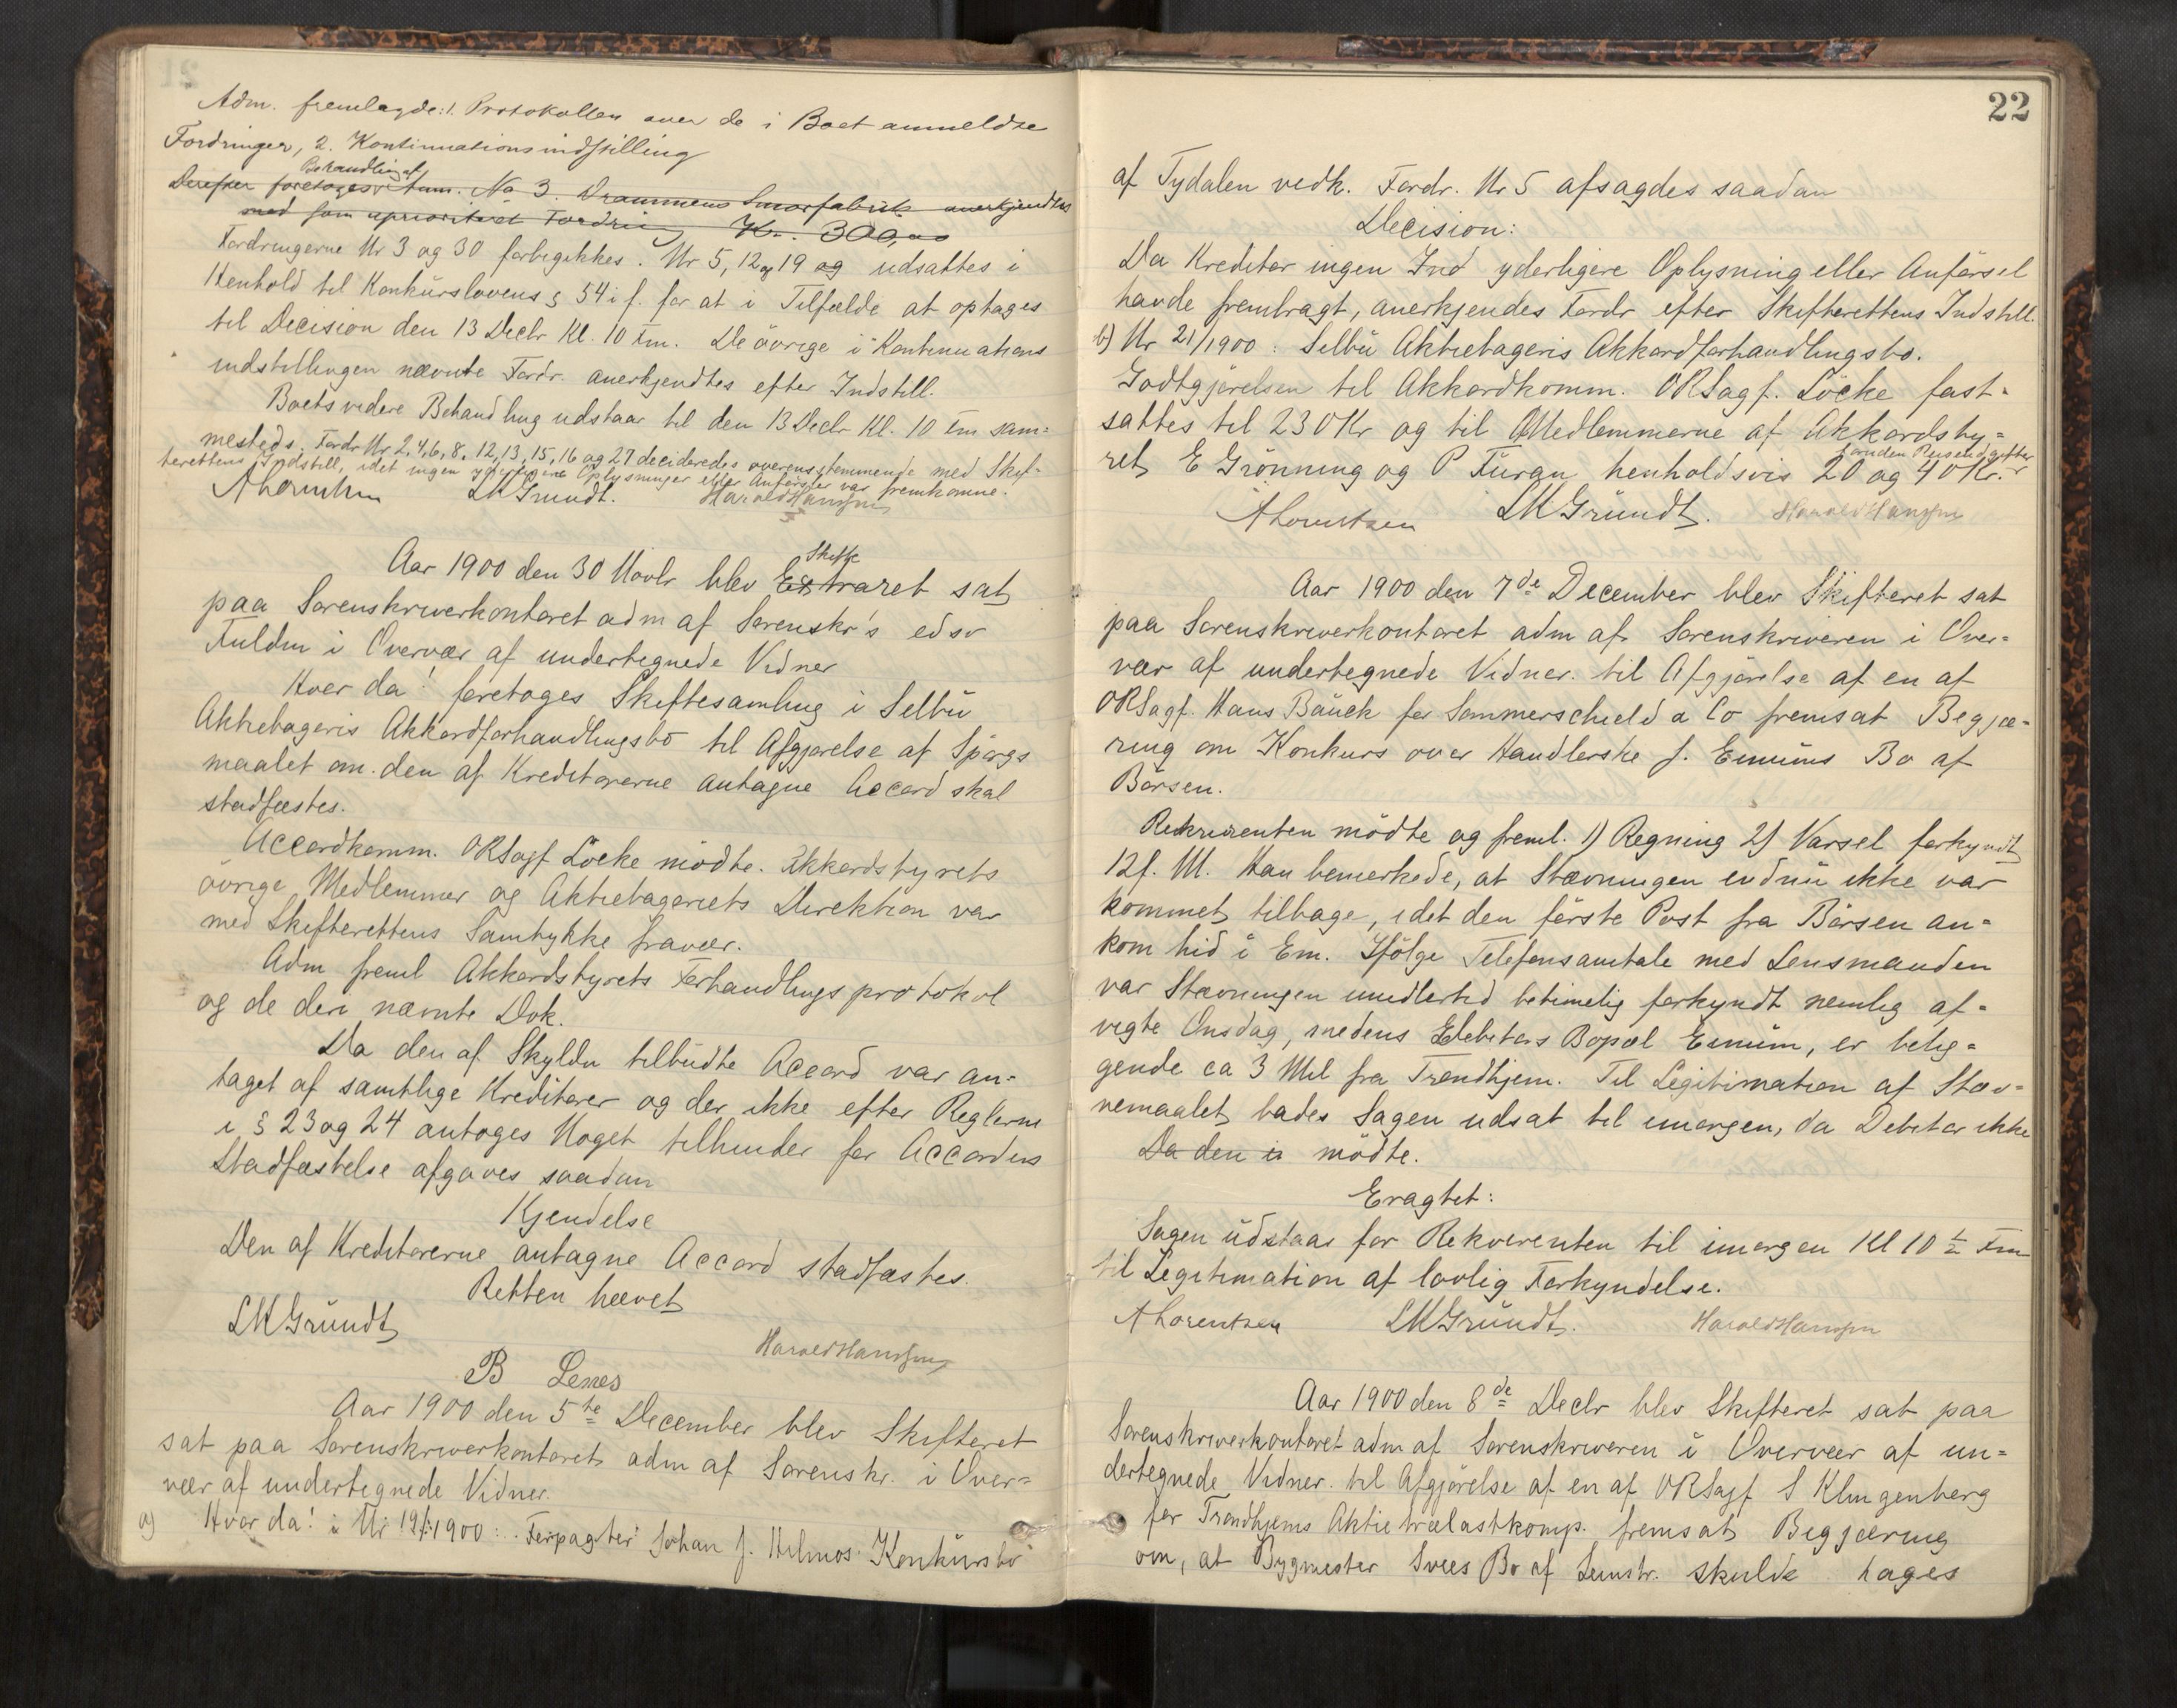 Adm. fremlagde: 1. Protokollen over de i Boet anmeldte
Fordringer, 2. Kontinuationsindstilling
Behandling af
Derefter foretoges Anm. No 3. Drammens Smørfabrik anerkjendtes
med som uprioriteret Fordring Kr. 300,00
Fordringerne Nr 3 og 30 forbigikkes. Nr 5, 12 og 19 og udsattes i
Henhold til Konkurslovens § 54 i f. for at i Tilfælde at optages
til Decision den 13 Decbr Kl. 10 Fm. De övrige i Kontinuations
indstillingen nævnte Fordr. anerkjendtes efter Indstill.
Boets videre Behandling udstaar til den 13 Decbr Kl. 10 Fm sam=
mesteds. Fordr Nr 2, 4, 6, 8, 12, 13, 15, 16 og 27 decideredes overensstemmende med Skif=
terettens Indstill, idet ingen yderligere Oplysninger eller Anförsler var fremkomne.
A Lorentzen LMGrundt. Harald Hansen
Aar 1900 den 30 Novbr blev Extraret sat
Skifte
paa Sorenskriverkontoret adm af Sorenskr's edsv
Fuldm i Overvær af undertegnede Vidner
Hvor da! foretoges Skiftesamling i Selbu
Aktiebageris Akkordforhandlingsbo til Afgjørelse af Spörgs
maalet om den af Kreditorerne antagne Accord skal
stadfæstes.
Accordkomm. ORSagf Löcke mödte. Akkordstyrets
övrige Medlemmer og Aktiebageriets Direktion var
med Skifterettens Samtykke fravær.
Adm freml Akkordstyrets Forhandlingsprotokol
og de deri nævnte Dok.
Da den af Skyldn tilbudte Accord var an=
taget af samtlige Kreditorer og der ikke efter Reglerne
i § 23 og 24 antoges Noget tilhinder for Accordens
Stadfæstelse afgaves saadan
Kjendelse
Den af Kreditorerne antagne Accord stadfæstes.
Retten hævet
LMGrundt
Harald Hansen
B Lenes
Aar 1900 den 5te December blev Skifteret
sat paa Sorenskriverkontoret adm af Sorenskr. i Over=
vær af undertegnede Vidner.
a) Hvor da! i Nr 19/1900: Forpagter Johan J. Hilmos Konkursbo
22
af Tydalen vedk. Fordr. Nr 5 afsagdes saadan
Decision:
Da Kreditor ingen Ind yderligere Oplysning eller Anförsel
havde frembragt, anerkjendes Fordr efter Skifterettens Indstill.
b) Nr 21/1900: Selbu Aktiebageris Akkordforhandlingsbo.
Godtgjörelsen til Akkordkomm. ORSagf. Löcke fast=
sattes til 230 Kr og til Medlemmerne af Akkordsty=
foruden Reiseudgifter
ret E Grönning og P Furan henholdsvis 20 og 40 Kr.
A Lorentzen LMGrundt. Harald Hansen
Aar 1900 den 7de December blev Skifteret sat
paa Sorenskriverkontoret adm af Sorenskriveren i Over=
vær af undertegnede Vidner til Afgjörelse af en af
ORSagf. Hans Bauck for Sommerschield & Co fremsat Begjæ=
ring om Konkurs over Handlerske J. Eminms Bo af
Börsen.
Rekvirenten mödte og freml. 1) Regning 2) Varsel forkyndt
12 f. M. Han bemerkede, at Stævningen endnu ikke var
kommet tilbage, idet den förste Post fra Börsen an=
kom hid i Em. Ifölge Telefonsamtale med Lensmanden
var Stævningen imidlertid betimelig forkyndt nemlig af=
vigte Onsdag, medens Debitors Bopæl Eminm, er belig=
gende ca 3 Mil fra Trondhjem. Til Legitimation af Stæv=
nemaalet bades Sagen udsat til imorgen, da Debitor ikke
Da den i mödte.
Eragtet:
Sagen udstaar for Rekvirenten til imorgen Kl 10 1/2 Fm
til Legitimation af lovlig Forkyndelse.
A Lorentzen LMGrundt. Harald Hansen
Aar 1900 den 8de Decbr blev Skifteret sat paa
Sorenskriverkontoret adm af Sorenskriveren i Overvær af un=
dertegnede Vidner til Afgjörelse af en af ORSagf S Klingenberg
for Trondhjems Aktietrælastkomp. fremsat Begjæring
om, at Bygmester Svees Bo af Leinstr. skulde tages